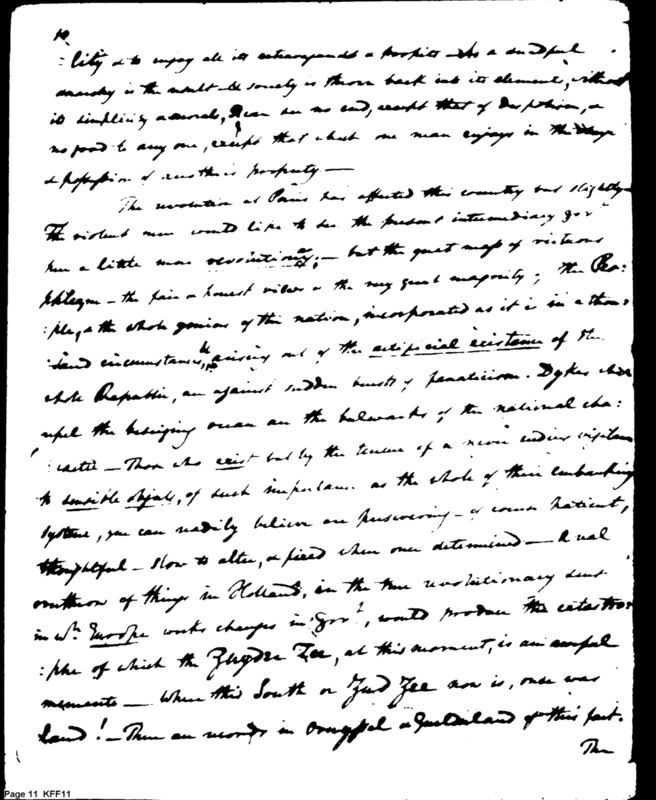 10
:lity & to enjoy all its extravagance & profits – As a dreadful
anarchy is the result & society is thrown back into its elements, without
its simplicity & morals, I can see no end, except that of despotism, &
no good to any one, except that which one man enjoys in the
& possession of another's property —
The revolution at Paris has affected this country but slightly
The violent men would like to see the present intermediary Govt
here a little more revolutionary; — but the great mass of virtuous
phlegm – the fair & honest views & the very great majority of the Peo:
:ple, & the whole genius of the nation, incorporated as it is in a thou:
:sand circumstances, arising out of the artificial existence of the
whole Republic, are against sudden bursts of fanaticism. Dykes which
repel the besieging ocean are the bulwarks of the national cha:
:racter – Those who exist but by the tenure of a never ending vigilance
to sensible objects, of such importance as the whole of their embanking
system, you can readily believe are persevering – of course patient,
thoughtful – slow to alter, & fixed when once determined — A real
overthrow of things in Holland, in the true revolutionary sense
in wh. Europe works changes in Govt, would produce the catastro:
:phe of which the Zuyder Zee, at this moment, is an awful
memento — Where this South or Zud Zee now is, once was
land! – There are records in Overyssel & Guelderland of this fact.
The
Page 11 KFF11